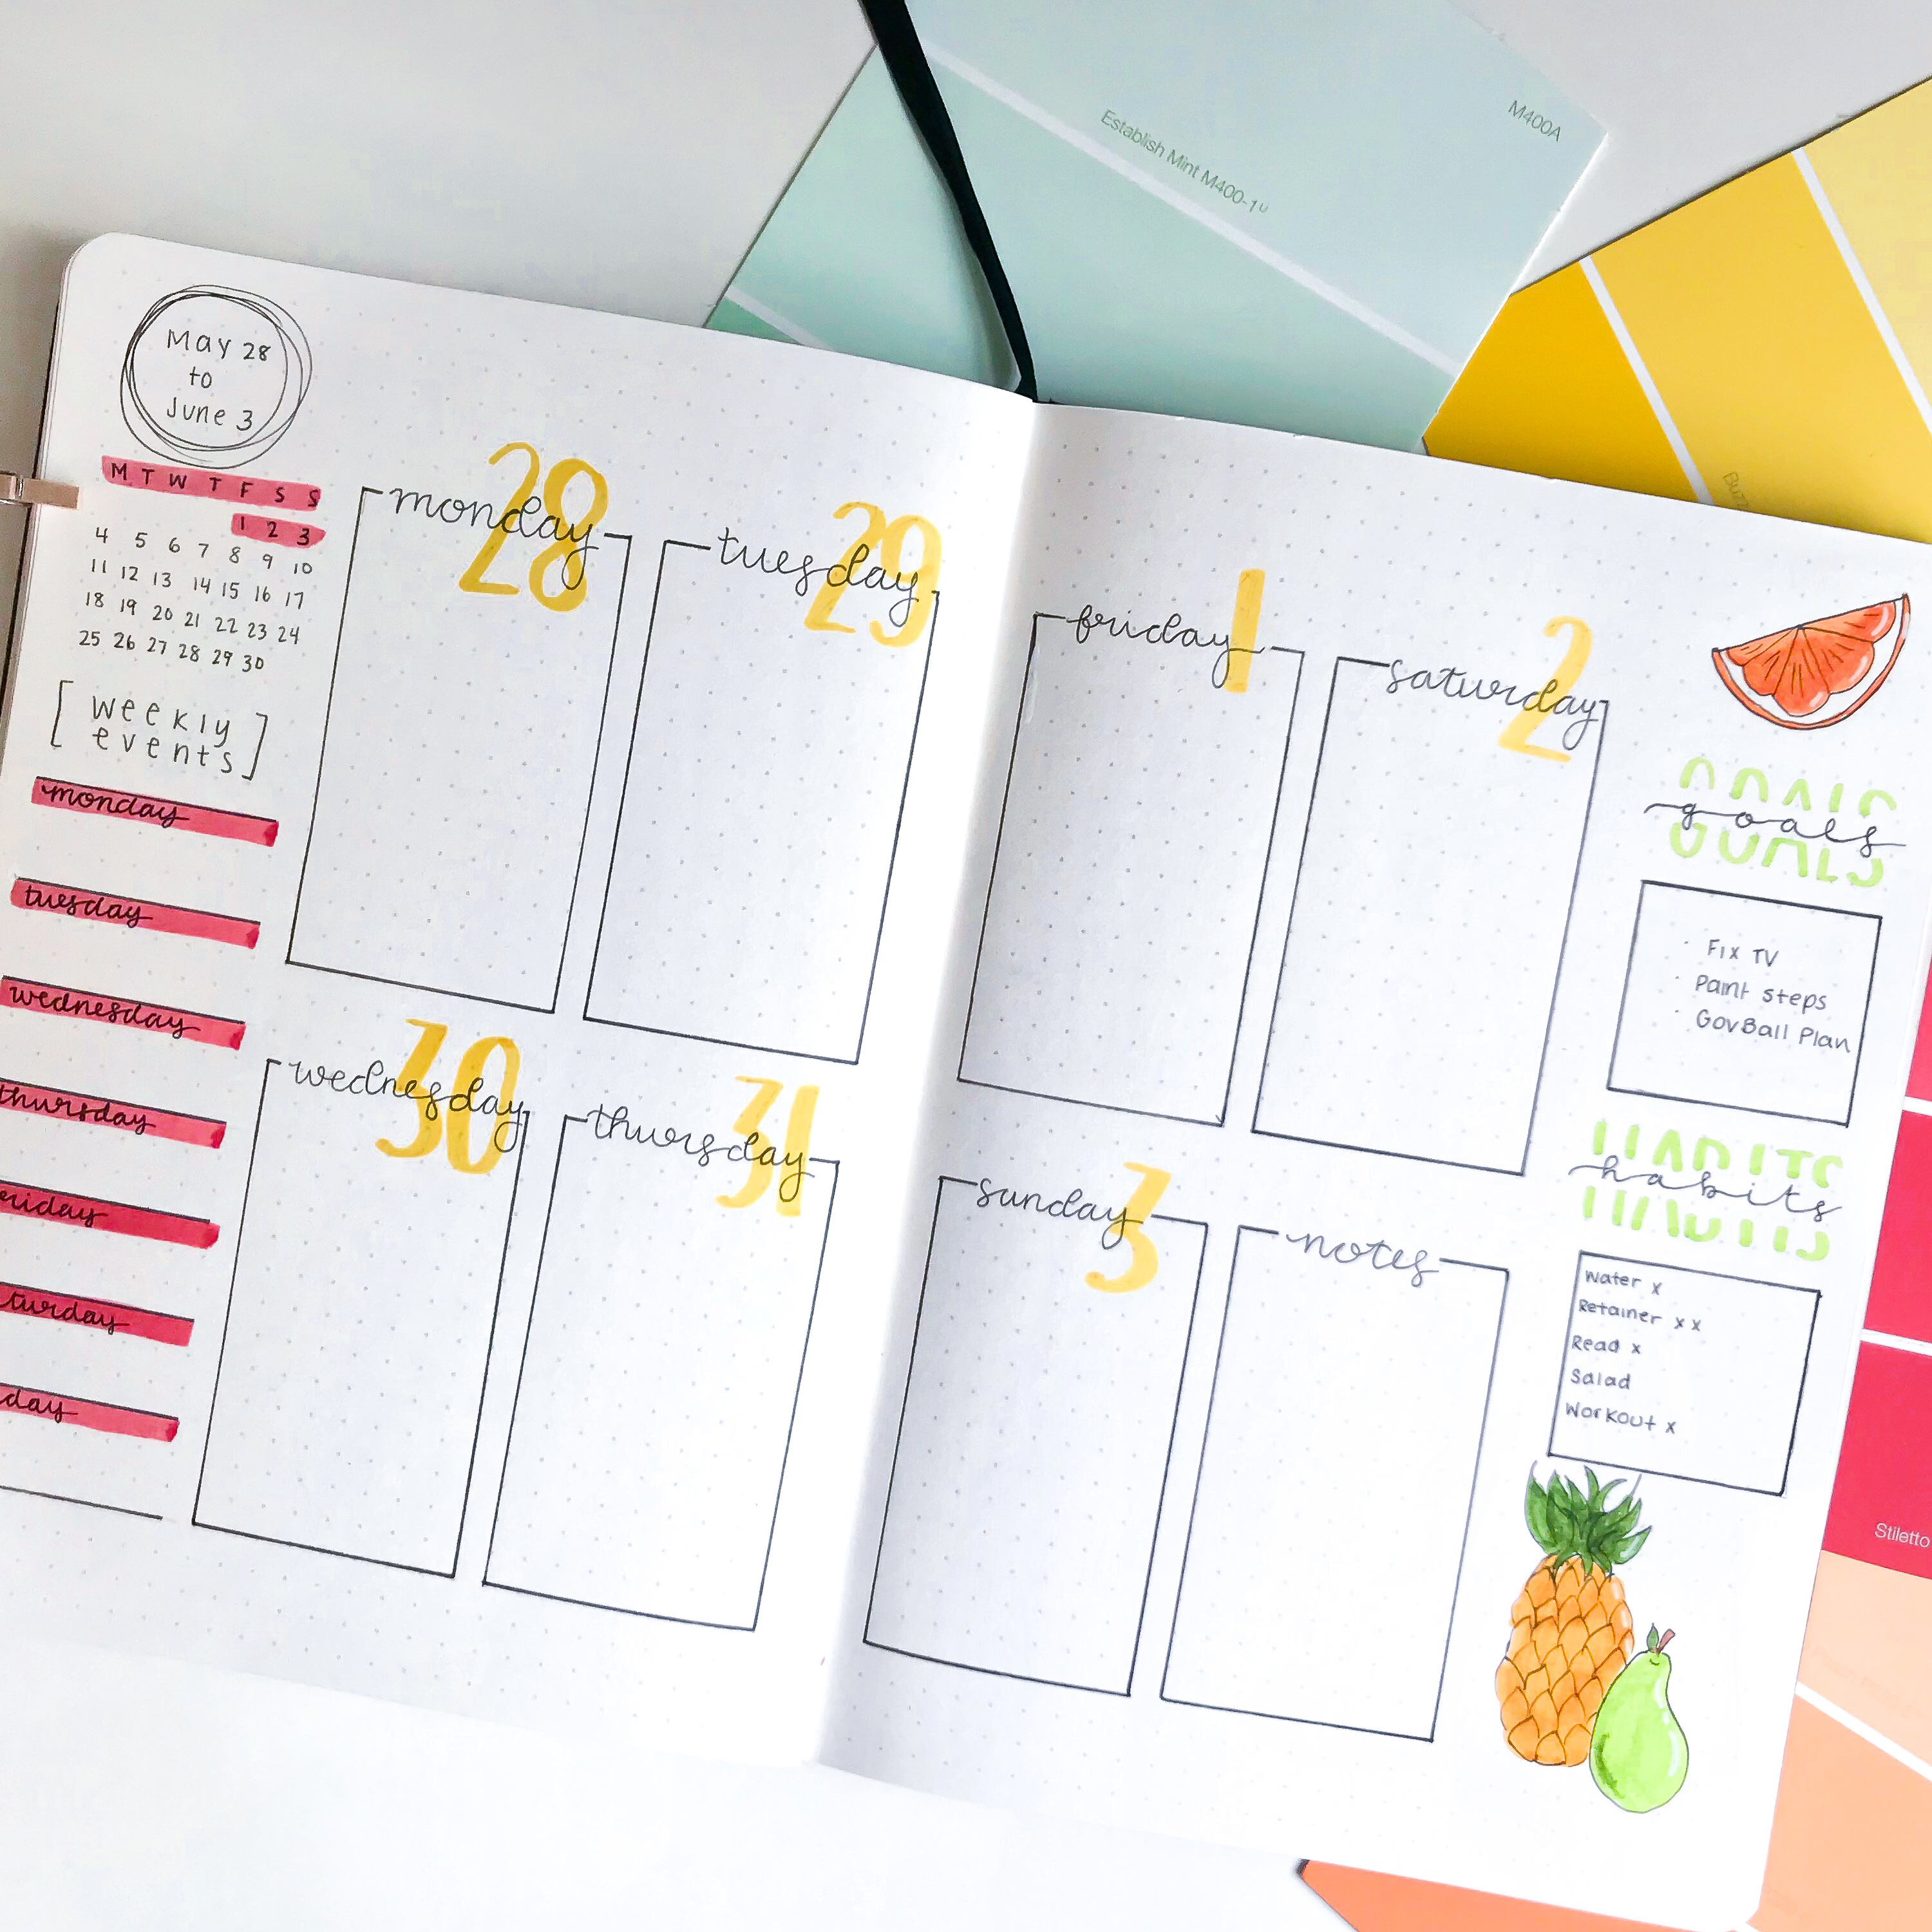 Establish Mint M400-1U
M400A
May 28
to
June 3
M T W T F S S
1 2 3
4 5 6 7 8 9 10
11 12 13 14 15 16 17
18 19 20 21 22 23 24
25 26 27 28 29 30
[ weekly
events ]
monday
tuesday
wednesday
thursday
riday
turday
day
monday 28
tuesday 29
wednesday 30
thursday 31
friday 1
saturday 2
sunday 3
notes
GOALS
goals
· Fix TV
· Paint steps
· GovBall Plan
HABITS
habits
Water x
Retainer x x
Read x
Salad
Workout x
Stiletto